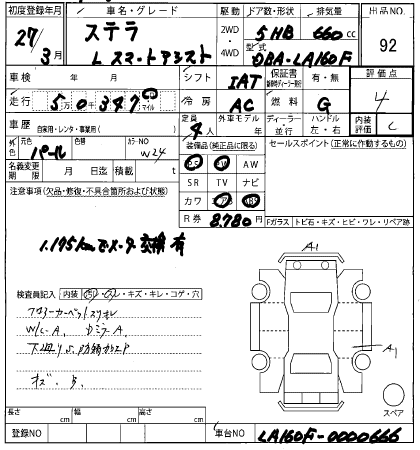 初度登録年月 車名・グレード 駆動 ドア数・形状 排気量 出品NO
27/3月 ステラ 2WD・4WD 5 HB 660cc 92
L スマートアシスト 型式 DBA-LA160F
車検 年 月 シフト IAT 保証書 有・無 評価点
走行 50347 マイル 冷房 AC 燃料 G 4
車歴 自家用・レンタ・事業用( ) 定員 4人 外車モデル ディーラー・並行 ハンドル 左・右 内装 C
外色 元色 パール 色替 カラーNO W24 装備品(純正品に限る) セールスポイント(正常に動作するもの)
名義変更期限 月 日迄 積載 t PS PW AW
SR TV ナビ
注意事項(欠品・修復・不具合箇所および状態) カワ エアB ABS
R券 8,780円 Fガラス トビ石・キズ・ヒビ・ワレ・リペア跡
1,195kmでメーター交換有
A1
検査員記入 内装 汚レ・スレ・キズ・キレ・コゲ・穴
フロアーカーペットスリキレ
W/L-A. DミラーA.
A1
下廻りサビ防錆
スペア
長さ cm 幅 cm 高さ cm
登録NO 車台NO LA160F-0000666